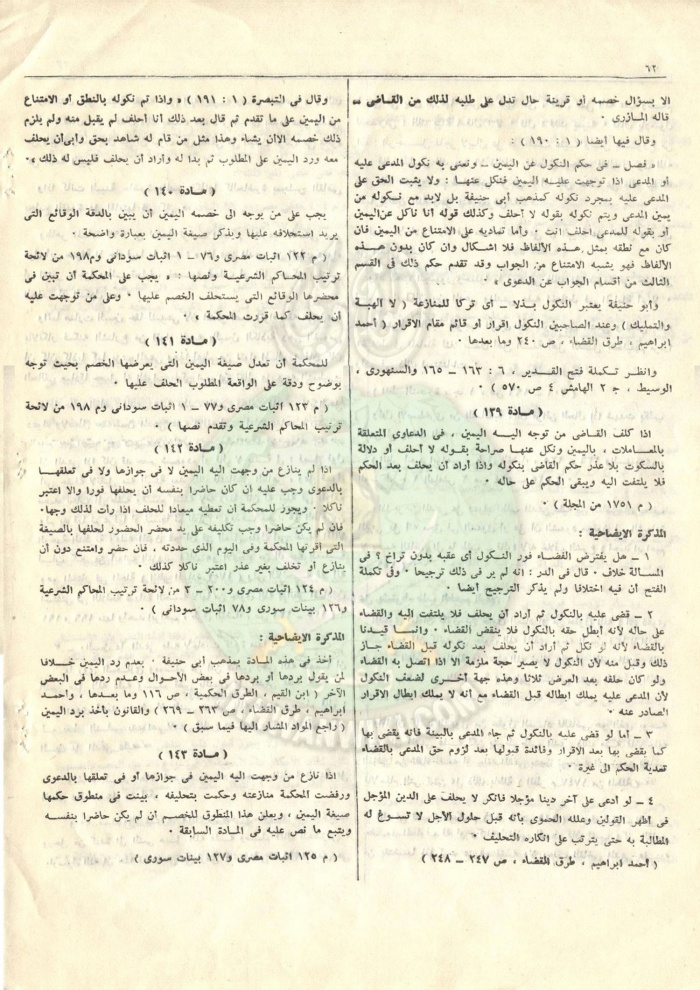 ٦٢
الا بسؤال خصمه أو قرينة حال تدل على طلبه لذلك من القاضى »
قاله المازرى ٠
وقال فيها أيضا ( ١ : ١٩٠ ) :
« فصل ـ فى حكم النكول عن اليمين ـ ونعنى به نكول المدعى عليه
أو المدعى اذا توجهت عليه اليمين فنكل عنها : ولا يثبت الحق على
المدعى عليه بمجرد نكوله كمذهب أبى حنيفة بل لابد مع نكوله من
يمين المدعى ويتم نكوله بقوله لا أحلف وكذلك قوله أنا ناكل عن اليمين
أو بقوله للمدعى احلف أنت ٠ وأما تماديه على الامتناع من اليمين فان
كان مع نطقه بمثل هذه الألفاظ فلا اشكال وان كان بدون هذه
الألفاظ فهو يشبه الامتناع من الجواب وقد تقدم حكم ذلك فى القسم
الثالث من أقسام الجواب عن الدعوى »
وأبو حنيفة يعتبر النكول بذلا ـ أى تركا للمنازعة ( لا الهبة
والتمليك ) وعند الصاحبين النكول اقرار أو قائم مقام الاقرار ( أحمد
ابراهيم ، طرق القضاء ، ص ٢٤٠ وما بعدها ) ٠
وانظر تكملة فتح القدير ، ٦ : ١٦٣ ـ ١٦٥ والسنهورى ،
الوسيط ، ج ٢ الهامش ٤ ص ٥٧٠ )
( مادة ١٣٩ )
اذا كلف القاضى من توجه اليه اليمين ، فى الدعاوى المتعلقة
بالمعاملات ، باليمين ونكل عنها صراحة بقوله لا أحلف أو دلالة
بالسكوت بلا عذر حكم القاضى بنكوله واذا أراد أن يحلف بعد الحكم
فلا يلتفت اليه ويبقى الحكم على حاله ٠
( م ١٧٥١ من المجلة ) ٠
المذكرة الايضاحية :
١ ـ هل يفترض القضاء فور النكول أى عقبه بدون تراخ ؟ فى
المسألة خلاف ٠ قال فى الدر : انه لم ير فى ذلك ترجيحا ٠ وفى تكملة
الفتح أن فيه اختلافا ولم يذكر الترجيح أيضا ٠
٢ ـ قضى عليه بالنكول ثم أراد أن يحلف فلا يلتفت اليه والقضاء
على حاله لأنه أبطل حقه بالنكول فلا ينقض القضاء ٠ وانما قيدنا
بالقضاء لأنه لو نكل ثم أراد أن يحلف بعد نكوله قبل القضاء جاز
ذلك وقبل منه لأن النكول لا يصير حجة ملزمة الا اذا اتصل به القضاء
ولو كان حلفه بعد العرض ثلاثا وهذه جهة أخرى لضعف النكول
لأن المدعى عليه يملك ابطاله قبل القضاء مع أنه لا يملك ابطال الاقرار
الصادر عنه ٠
٣ ـ أما لو قضى عليه بالنكول ثم جاء المدعى بالبينة فانه يقضى بها
كما يقضى بها بعد الاقرار وفائدة قبولها بعد لزوم حق المدعى بالقضاء
تعدية الحكم الى غيره ٠
٤ ـ لو ادعى على آخر دينا مؤجلا فأنكر لا يحلف على الدين المؤجل
فى أظهر القولين وعلله الحموى بأنه قبل حلول الأجل لا تسوغ له
المطالبة به حتى يترتب على انكاره التحليف ٠
( أحمد ابراهيم ، طرق القضاء ، ص ٢٤٧ ـ ٢٤٨ )
وقال فى التبصرة ( ١ : ١٩١ ) « واذا تم نكوله بالنطق أو الامتناع
من اليمين على ما تقدم ثم قال بعد ذلك أنا أحلف لم يقبل منه ولم يلزم
ذلك خصمه الا أن يشاء وهذا مثل من قام له شاهد بحق وأبى أن يحلف
معه ورد اليمين على المطلوب ثم بدا له وأراد أن يحلف فليس له ذلك » ٠
( مادة ١٤٠ )
يجب على من يوجه الى خصمه اليمين أن يبين بالدقة الوقائع التى
يريد استحلافه عليها ويذكر صيغة اليمين بعبارة واضحة ٠
( م ١٢٢ اثبات مصرى و٧٦ ـ ١ اثبات سودانى وم ١٩٨ من لائحة
ترتيب المحاكم الشرعية ونصها : « يجب على المحكمة أن تبين فى
محضرها الوقائع التى يستحلف الخصم عليها ٠ وعلى من توجهت عليه
أن يحلف كما قررت المحكمة » ٠
( مادة ١٤١ )
للمحكمة أن تعدل صيغة اليمين التى يعرضها الخصم بحيث توجه
بوضوح ودقة على الواقعة المطلوب الحلف عليها ٠
( م ١٢٣ اثبات مصرى و٧٧ ـ ١ اثبات سودانى وم ١٩٨ من لائحة
ترتيب المحاكم الشرعية وتقدم نصها ) ٠
( مادة ١٤٢ )
اذا لم ينازع من وجهت اليه اليمين لا فى جوازها ولا فى تعلقها
بالدعوى وجب عليه ان كان حاضرا بنفسه أن يحلفها فورا والا اعتبر
ناكلا ٠ ويجوز للمحكمة أن تعطيه ميعادا للحلف اذا رأت لذلك وجها٠
فان لم يكن حاضرا وجب تكليفه على يد محضر الحضور لحلفها بالصيغة
التى أقرتها المحكمة وفى اليوم الذى حددته ، فان حضر وامتنع دون أن
ينازع أو تخلف بغير عذر اعتبر ناكلا كذلك ٠
( م ١٢٤ اثبات مصرى و٢٠٠ ـ ٣ من لائحة ترتيب المحاكم الشرعية
و١٢٦ بينات سورى و٧٨ اثبات سودانى ) ٠
المذكرة الايضاحية :
أخذ فى هذه المادة بمذهب أبى حنيفة ٠ بعدم رد اليمين خلافا
لمن يقول بردها أو بردها فى بعض الأحوال وعدم ردها فى البعض
الآخر ( ابن القيم ، الطرق الحكمية ، ص ١١٦ وما بعدها ، وأحمد
ابراهيم ، طرق القضاء ، ص ٢٦٣ ـ ٢٦٩ ) والقانون يأخذ برد اليمين
( راجع المواد المشار اليها فيما سبق ) ٠
( مادة ١٤٣ )
اذا نازع من وجهت اليه اليمين فى جوازها أو فى تعلقها بالدعوى
ورفضت المحكمة منازعته وحكمت بتحليفه ، بينت فى منطوق حكمها
صيغة اليمين ، ويعلن هذا المنطوق للخصم ان لم يكن حاضرا بنفسه
ويتبع ما نص عليه فى المادة السابقة ٠
( م ١٢٥ اثبات مصرى و١٢٧ بينات سورى )